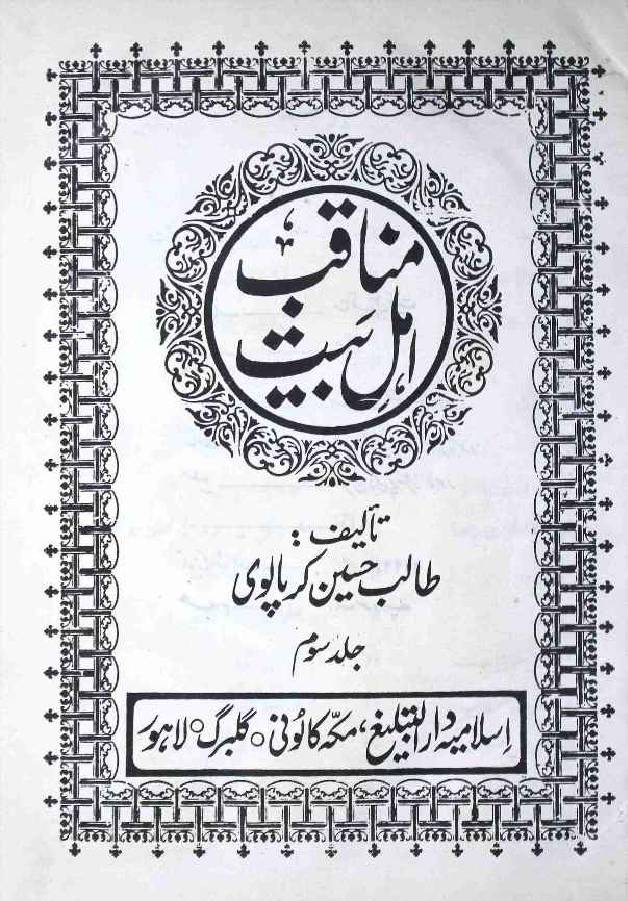 مناقب
اہلِ بیت
تألیف:
طالب حسین کرپالوی
جلد سوم
اسلامیہ دار التبلیغ، مکہ کالونی ○ گلبرگ ○ لاہور